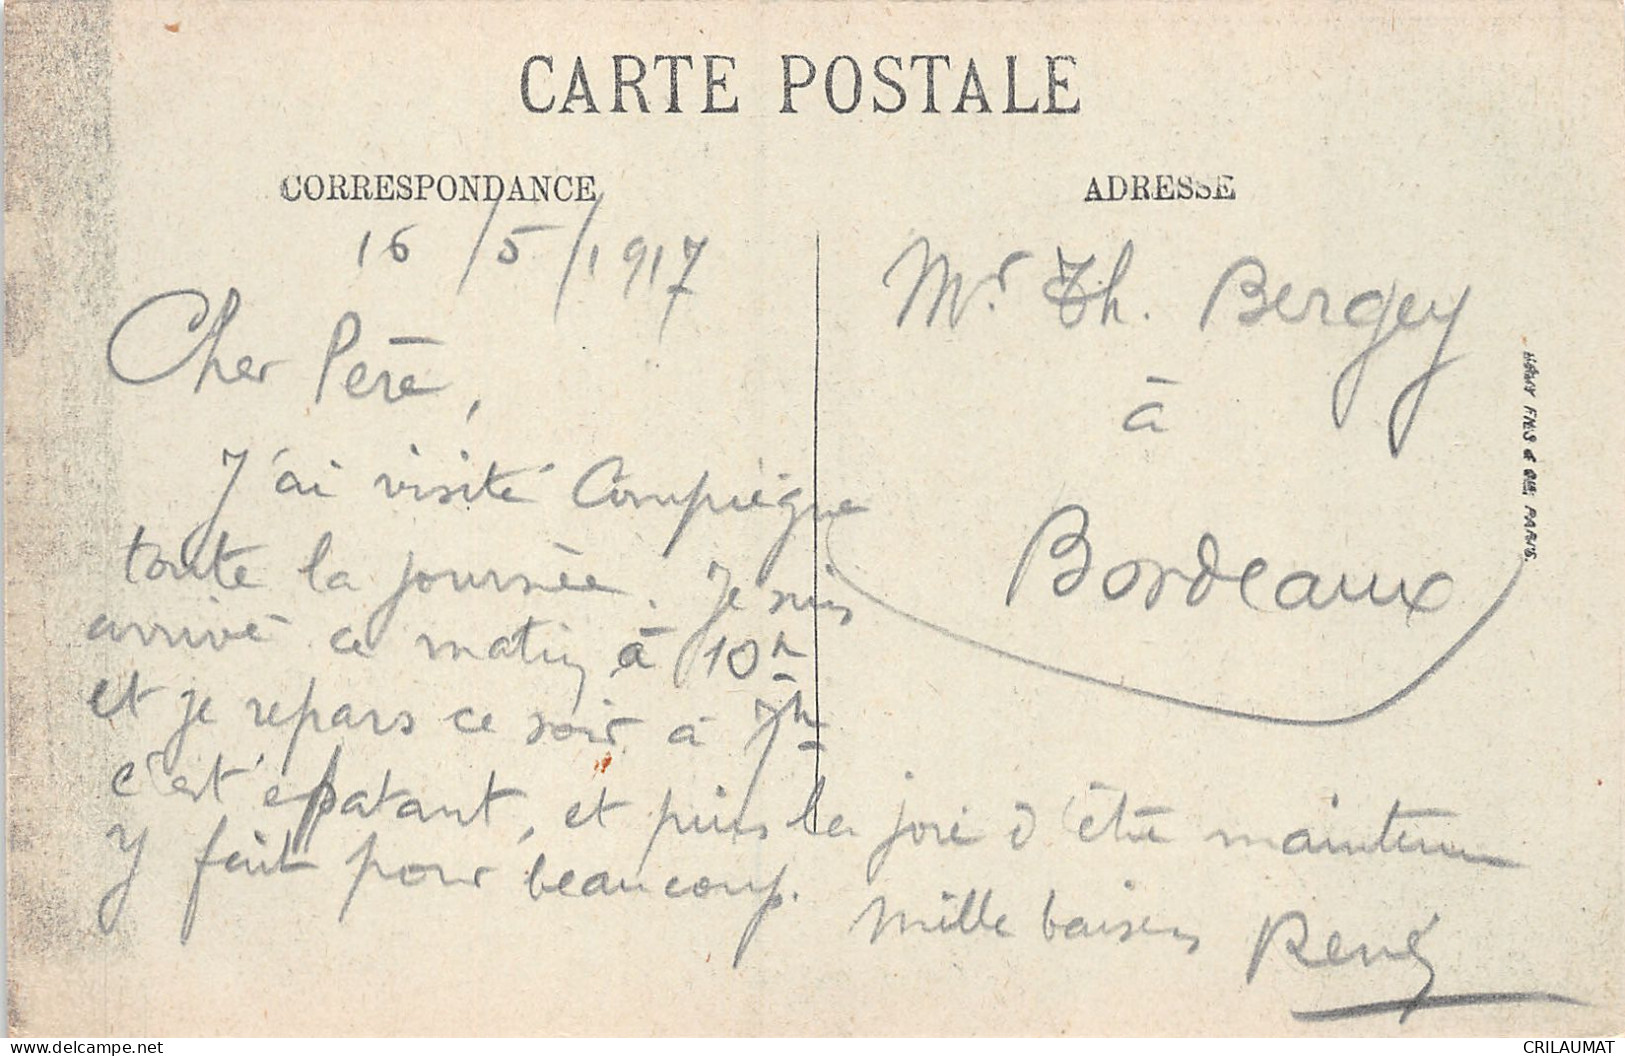 CARTE POSTALE
CORRESPONDANCE
16/5/1917
Cher Père,
J'ai visité Compiègne
toute la journée. Je suis
arrivé ce matin à 10h
et je repars ce soir à 7h
c'est épatant, et puis la joie d'être maintenu
y fait pour beaucoup.
Mille baisers René
ADRESSE
Mr. Th. Bergey
à
Bordeaux
FILS & CIE PARIS.
delcampe.net
CRILAUMAT